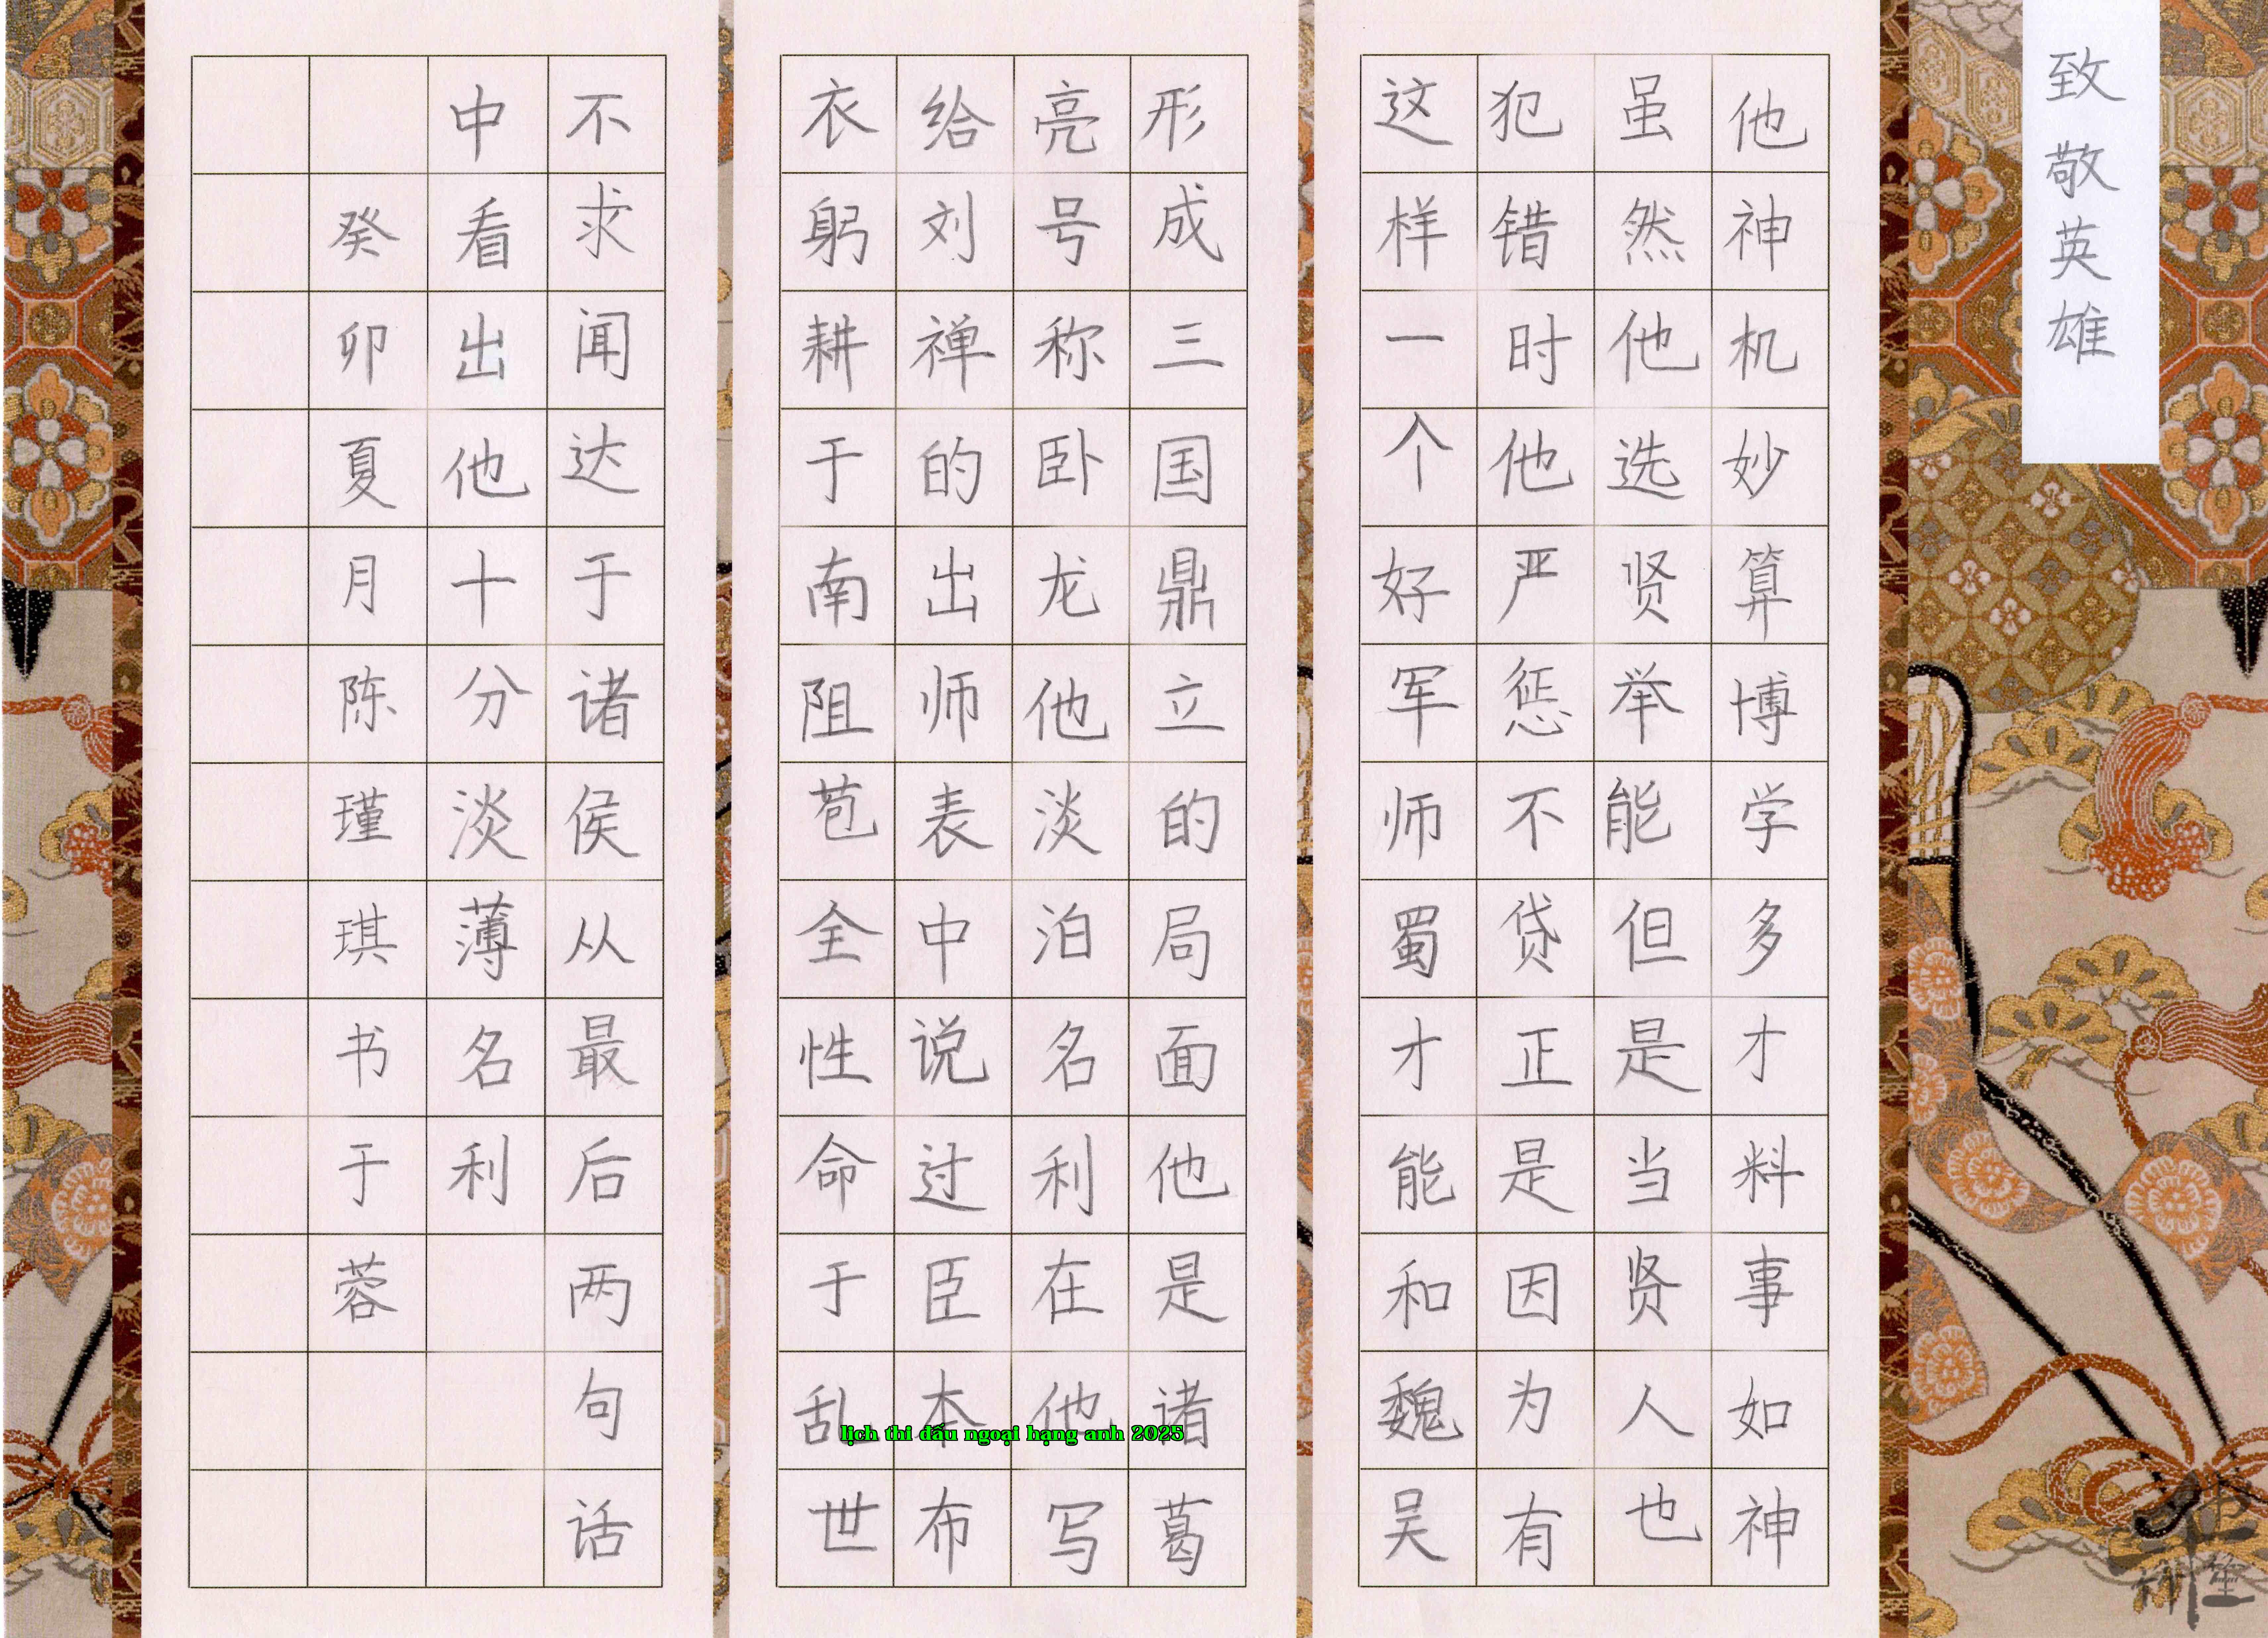 致敬英雄
他神机妙算博学多才料事如神
虽然他选贤举能但是当贤人也
犯错时他严惩不贷正是因为有
这样一个好军师蜀才能和魏吴
形成三国鼎立的局面他是诸葛
亮号称卧龙他淡泊名利在他写
给刘禅的出师表中说过臣本布
衣躬耕于南阻苞全性命于乱世
不求闻达于诸侯从最后两句话
中看出他十分淡薄名利
癸卯夏月陈瑾琪书于蓉
lịch thi đấu ngoại hạng anh 2025